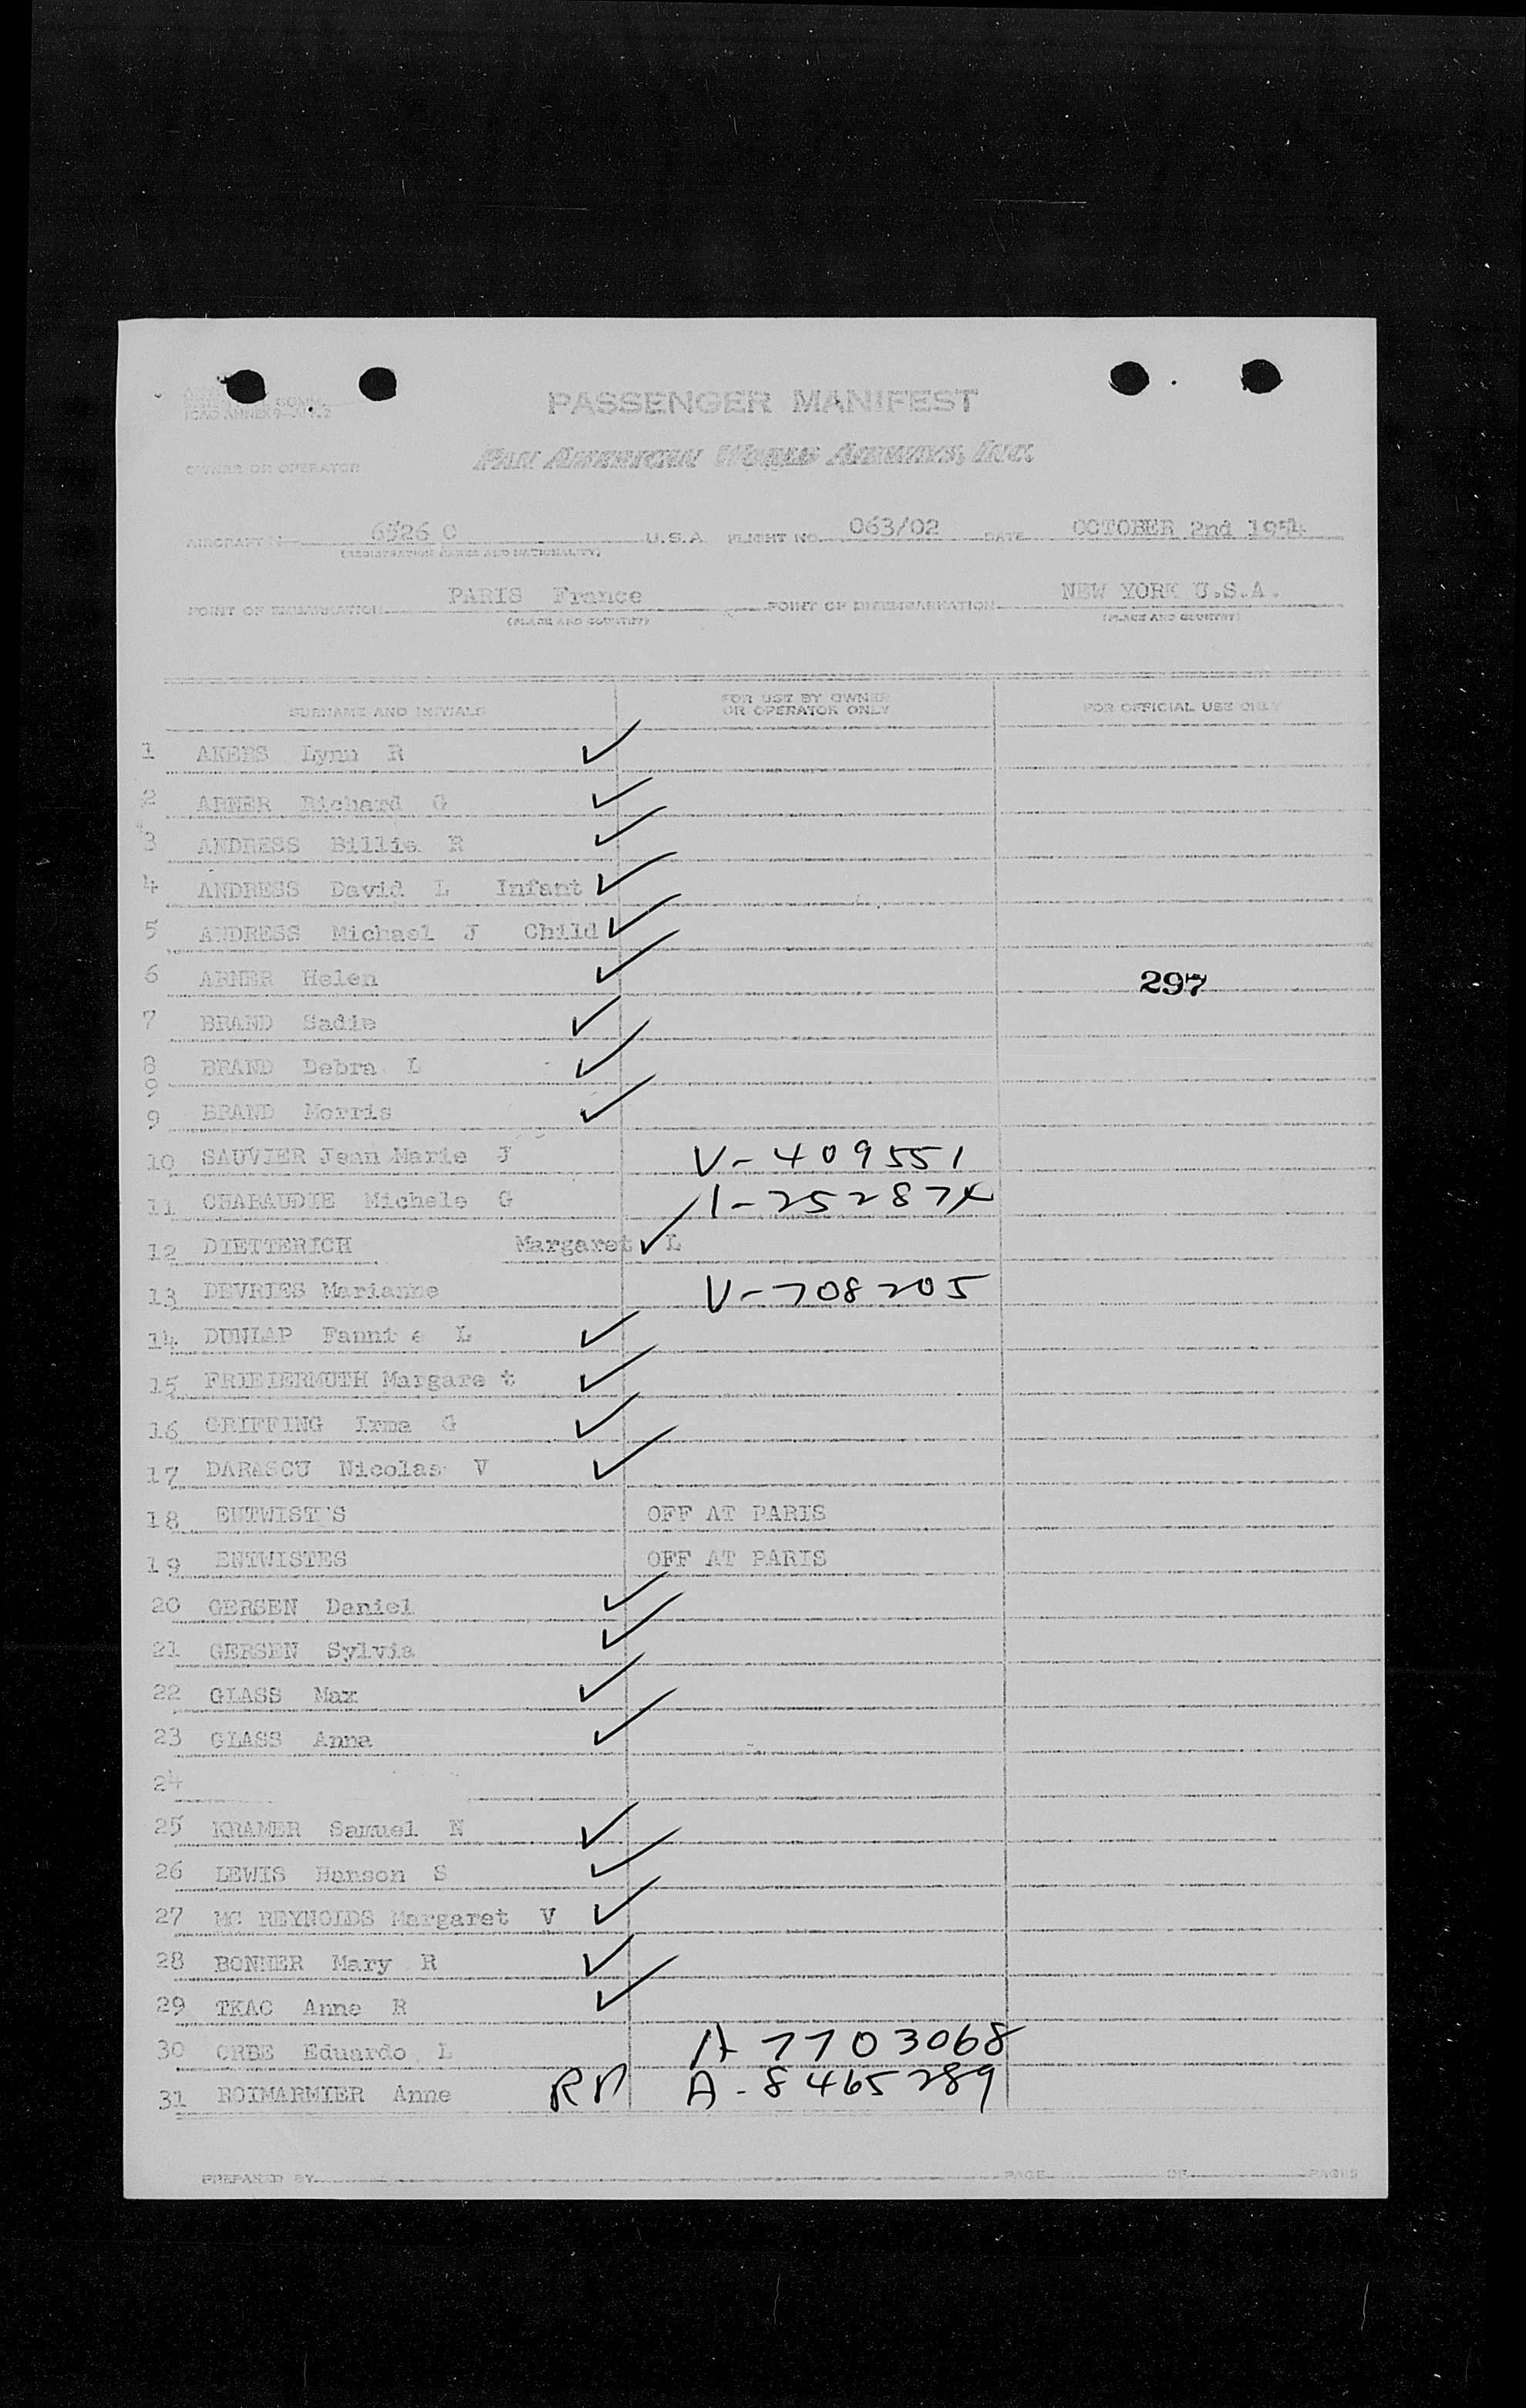 COMM.
ICAO ANNEX 9—APP. 2
PASSENGER MANIFEST
OWNER OR OPERATOR PAN AMERICAN WORLD AIRWAYS, INC.
AIRCRAFT N 6526 C U.S.A. FLIGHT NO. 063/02 DATE OCTOBER 2nd 1954
(REGISTRATION MARKS AND NATIONALITY)
POINT OF EMBARKATION PARIS France POINT OF DISEMBARKATION NEW YORK U.S.A.
(PLACE AND COUNTRY) (PLACE AND COUNTRY)
SURNAME AND INITIALS FOR USE BY OWNER OR OPERATOR ONLY FOR OFFICIAL USE ONLY
1 AKERS Lynn R ✓
2 ABNER Richard G ✓
3 ANDRESS Billie R ✓
4 ANDRESS David L Infant ✓
5 ANDRESS Michael J Child ✓
6 ABNER Helen ✓ 297
7 BRAND Sadie ✓
8 BRAND Debra L ✓
9
9 BRAND Morris ✓
10 SAUVIER Jean Marie J V-409551
11 CHARAUDIE Michele G 1-252874
12 DIETTERICH Margaret L ✓
13 DEVRIES Marianne V-708205
14 DUNLAP Fanni e L ✓
15 Margare t ✓
16 GRIFFING Irma G ✓
17 DARASCU Nicolas V ✓
18 ENTWIST'S OFF AT PARIS
19 ENTWISTES OFF AT PARIS
20 GERSEN Daniel ✓
21 GERSEN Sylvia ✓
22 GLASS Max ✓
23 GLASS Anna ✓
24
25 KRAMER Samuel N ✓
26 LEWIS Hanson S ✓
27 MC REYNOLDS Margaret V ✓
28 BONNER Mary R ✓
29 TKAC Anne R ✓
30 ORBE Eduardo L A 7703068
31 ROIMARMIER Anne RP A-8465289
PREPARED BY PAGE OF PAGES